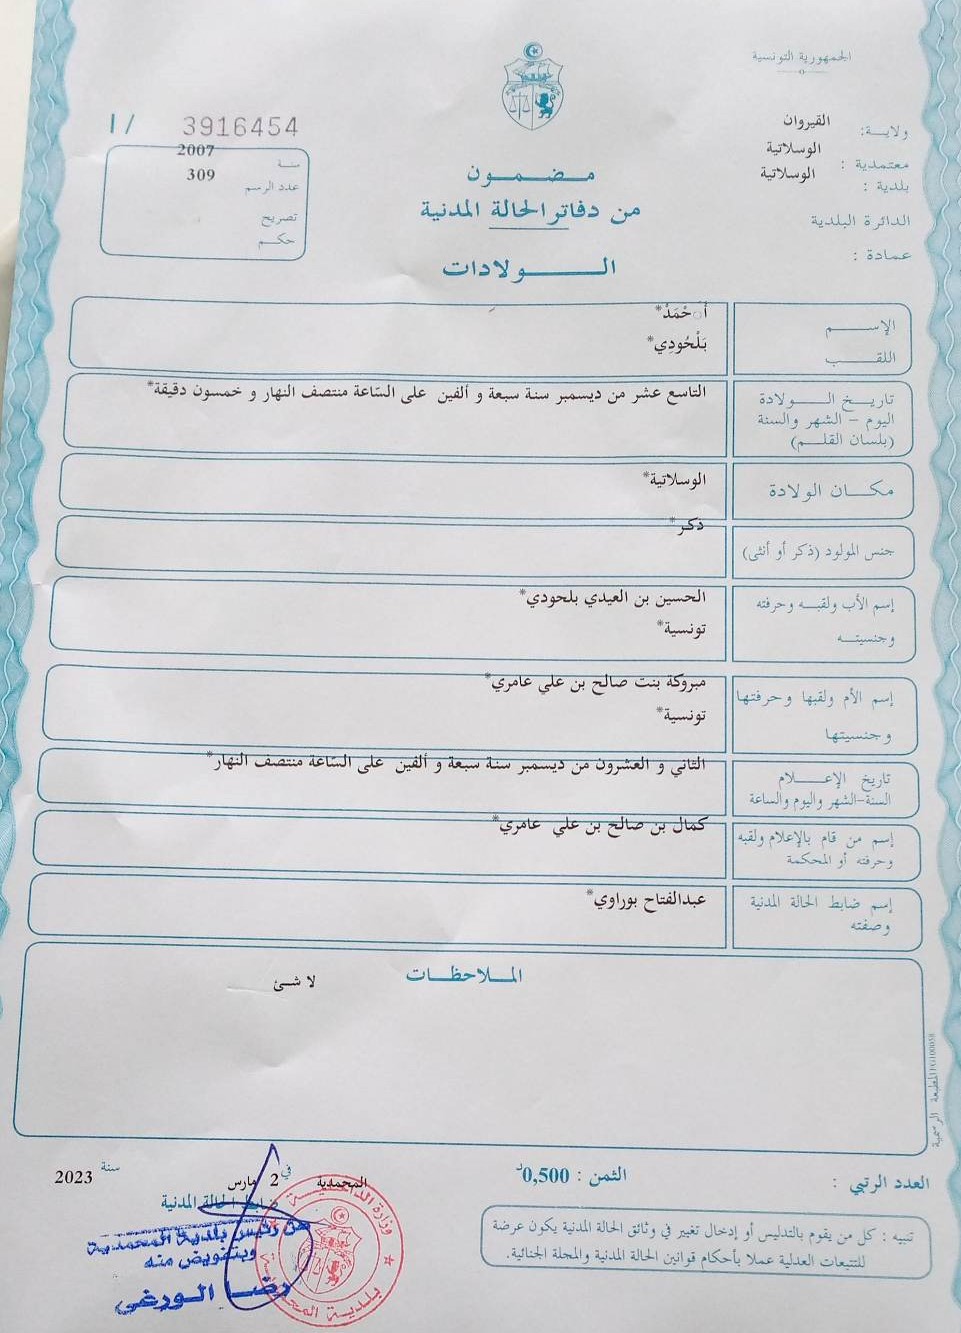 الجمهورية التونسية
ولاية: القيروان
معتمدية : الوسلاتية
بلدية : الوسلاتية
الدائرة البلدية
عمادة :
مضمون
من دفاتر الحالة المدنية
الولادات
3916454 / ا
سنة 2007
عدد الرسم 309
تصريح
حكم
الإسم أحْمَدْ*
اللقب بَلْحُودِي*
تاريخ الولادة
اليوم - الشهر والسنة
(بلسان القلم)
التاسع عشر من ديسمبر سنة سبعة و ألفين على السّاعة منتصف النهار و خمسون دقيقة*
مكان الولادة الوسلاتية*
جنس المولود (ذكر أو أنثى) ذكر*
إسم الأب ولقبه وحرفته الحسين بن العيدي بلحودي*
وجنسيته تونسية*
إسم الأم ولقبها وحرفتها مبروكة بنت صالح بن علي عامري*
وجنسيتها تونسية*
تاريخ الإعلام
السنة-الشهر واليوم والساعة
الثاني و العشرون من ديسمبر سنة سبعة و ألفين على السّاعة منتصف النهار*
إسم من قام بالإعلام ولقبه
وحرفته أو المحكمة
كمال بن صالح بن علي عامري*
إسم ضابط الحالة المدنية
وصفته
عبدالفتاح بوراوي*
الملاحظات
لا شئ
المطبعة الرسمية
العدد الرتبي :
الثمن : 0,500د
تنبيه : كل من يقوم بالتدليس أو إدخال تغيير في وثائق الحالة المدنية يكون عرضة
للتتبعات العدلية عملا بأحكام قوانين الحالة المدنية والمجلة الجنائية.
المحمدية في 2 مارس سنة 2023
ضابط الحالة المدنية
عن رئيس بلدية المحمدية
وبتفويض منه
رضا الورغي
وزارة الداخلية
بلدية المحمدية